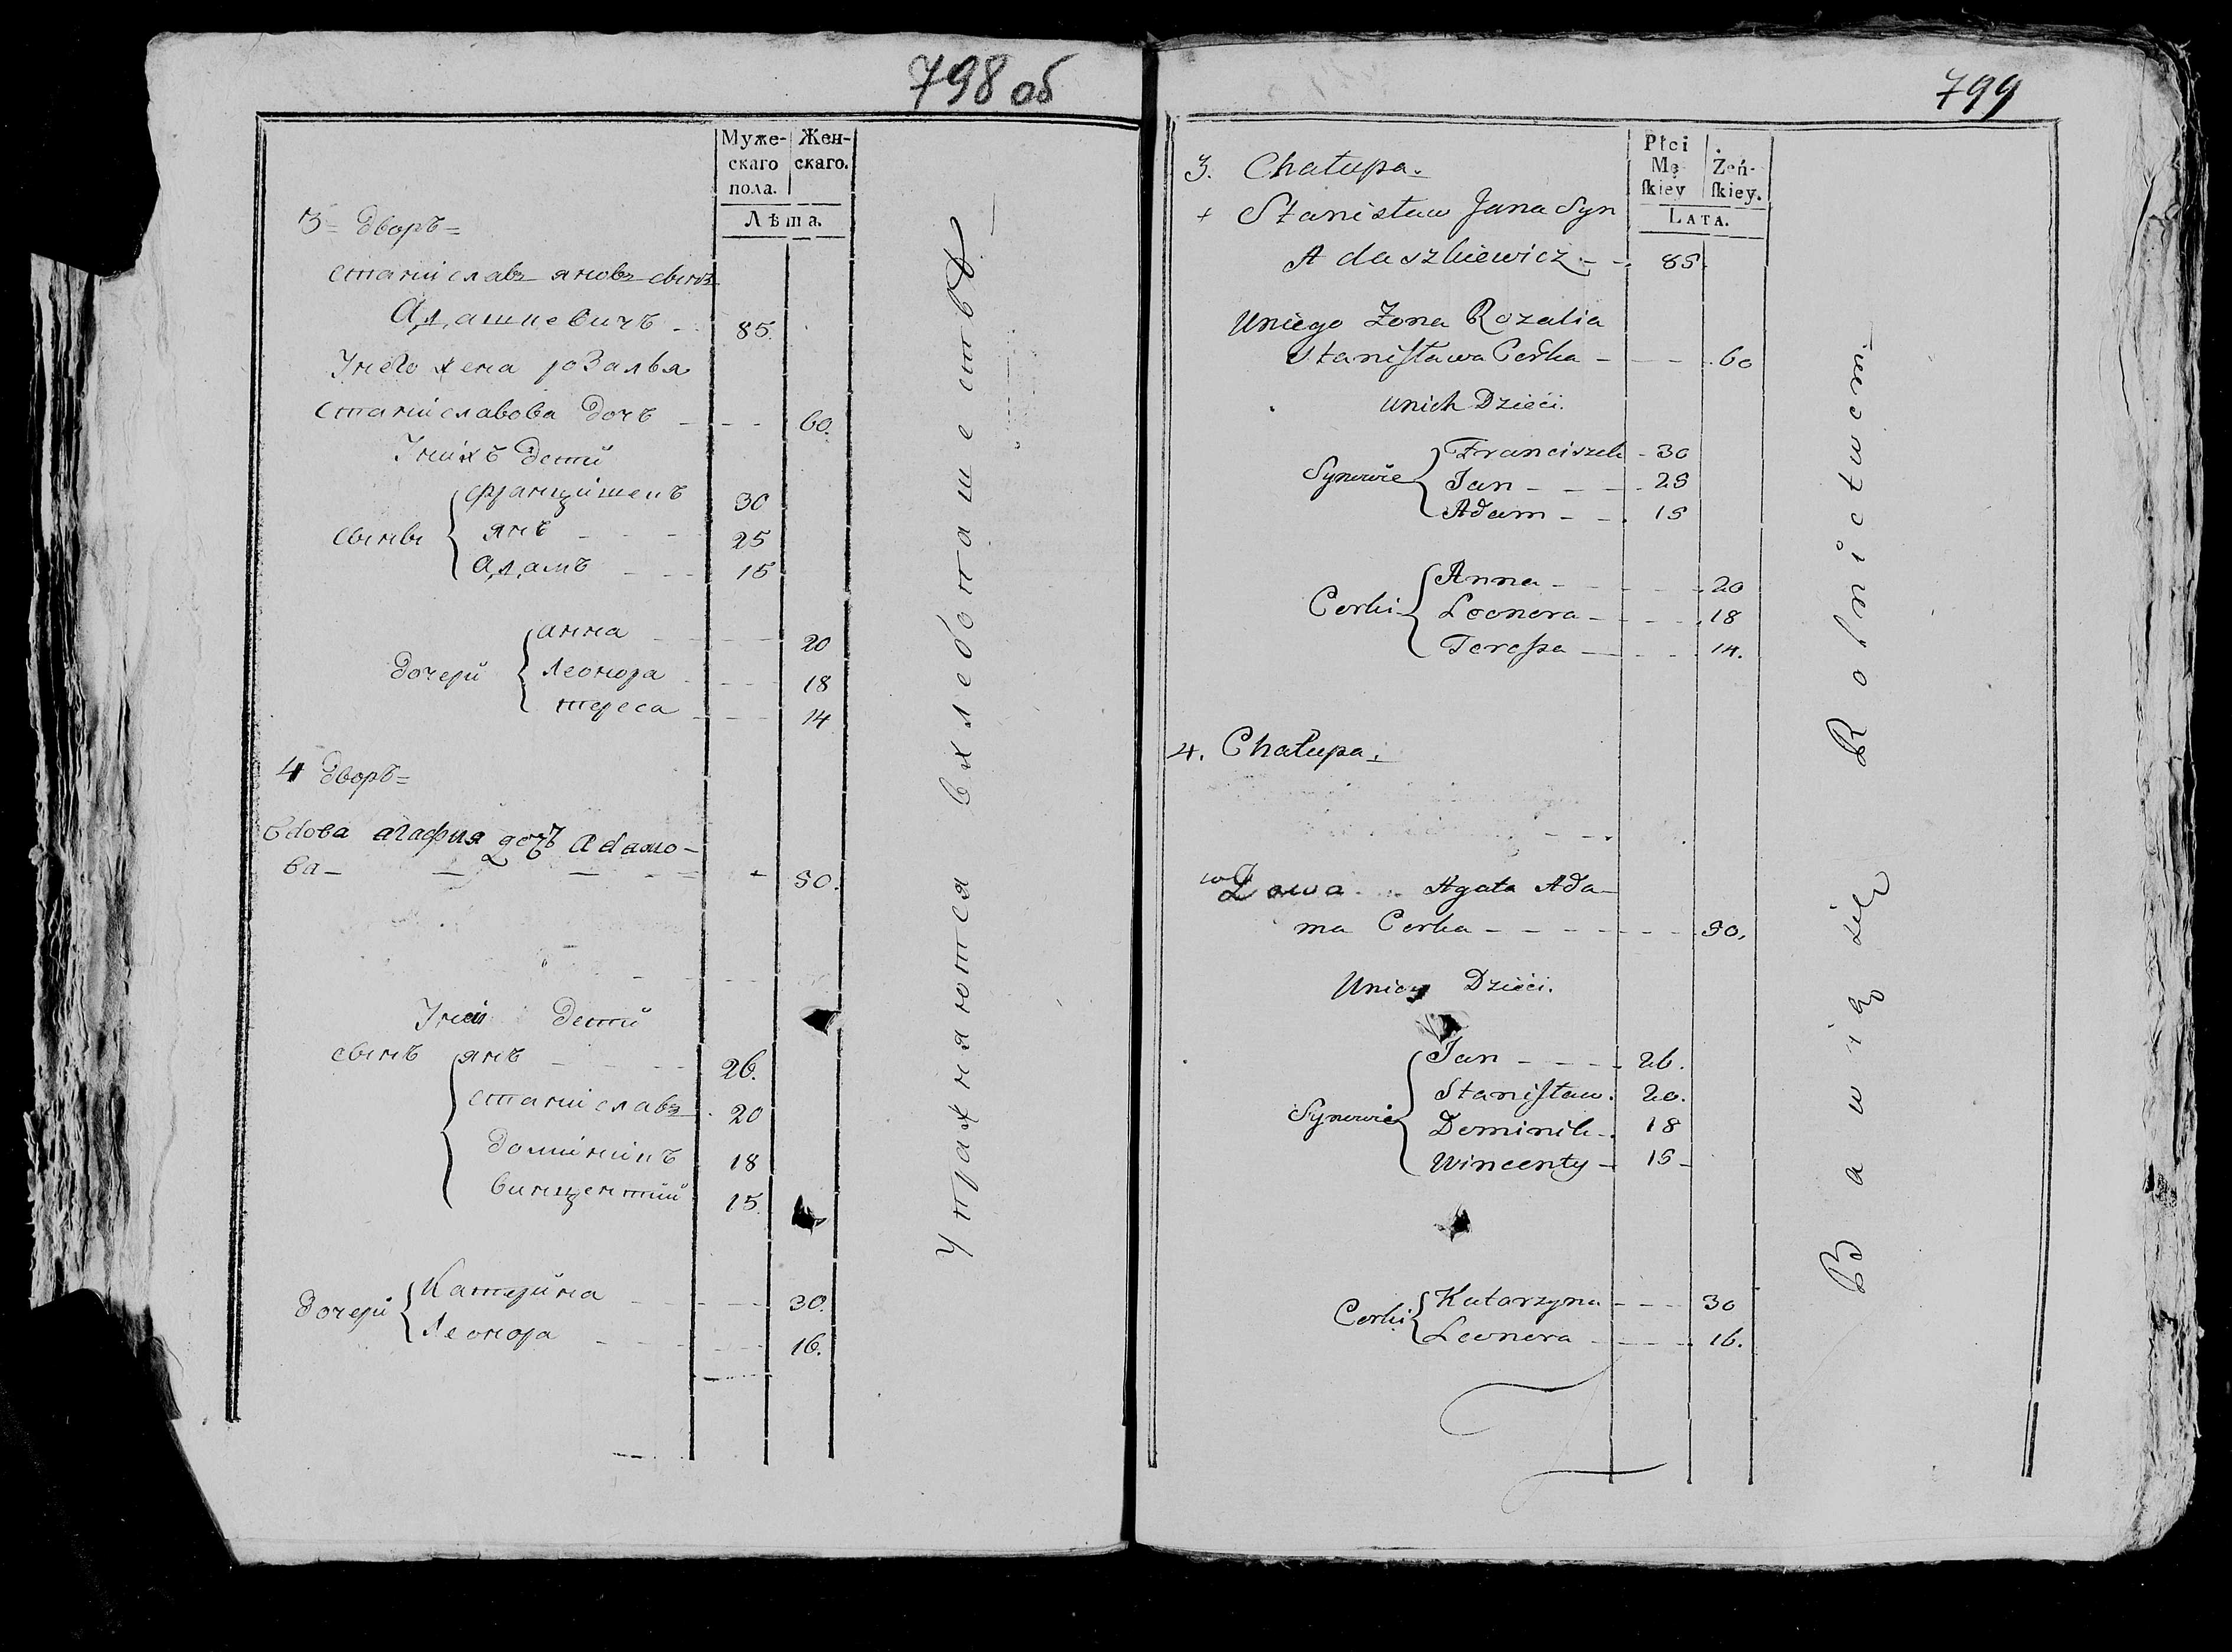 798 об
Муже-
скаго
пола.
Жен-
скаго.
Лѣта.
3 = дворъ =
станиславъ яновъ сынъ
Адашкевичъ - 85.
Унего жена розалья
станиславова дочъ - - - 60.
Унихъ дети
сыны
францишекъ 30
янъ - - - 25
Адамъ - - - 15
дочери
анна - - - 20
леонора - - - 18
тереса - - - 14
4 дворъ =
вдова агафия дочъ Адамо-
ва - - - - - 50.
Уней дети
сынъ
янъ - - - 26.
станиславъ. 20
доминикъ 18
винцентий 15.
дочери
Катерина - - - 30.
Леонора - - - 16.
Упражняются вхлебопашестве
799
Płci
Mę-
ſkiey
Żeń-
ſkiey.
Lata.
3. Chałupa.
+ Stanisław Jana Syn
Adaszkiewicz - - 85.
Uniego Zona Rozalia
Staniſława Corka - - - 60
Unich Dzieci.
Synowie
Franciszek - 30
Jan - - - 25
Adam - - . 15
Corki
Anna - - - - 20
Leonora - - - 18
Tereſsa - - - 14.
4. Chałupa.
wdowa Agata Ada-
ma Corka - - - - - - 50.
Uniey Dzieci.
Synowie
Jan - - - - 26.
Staniſław. 20.
Dominik - . 18
Wincenty - 15 -
Corki
Katarzyna - - - 30
Leonora - - - - 16.
Bawią się Rolnictwem.